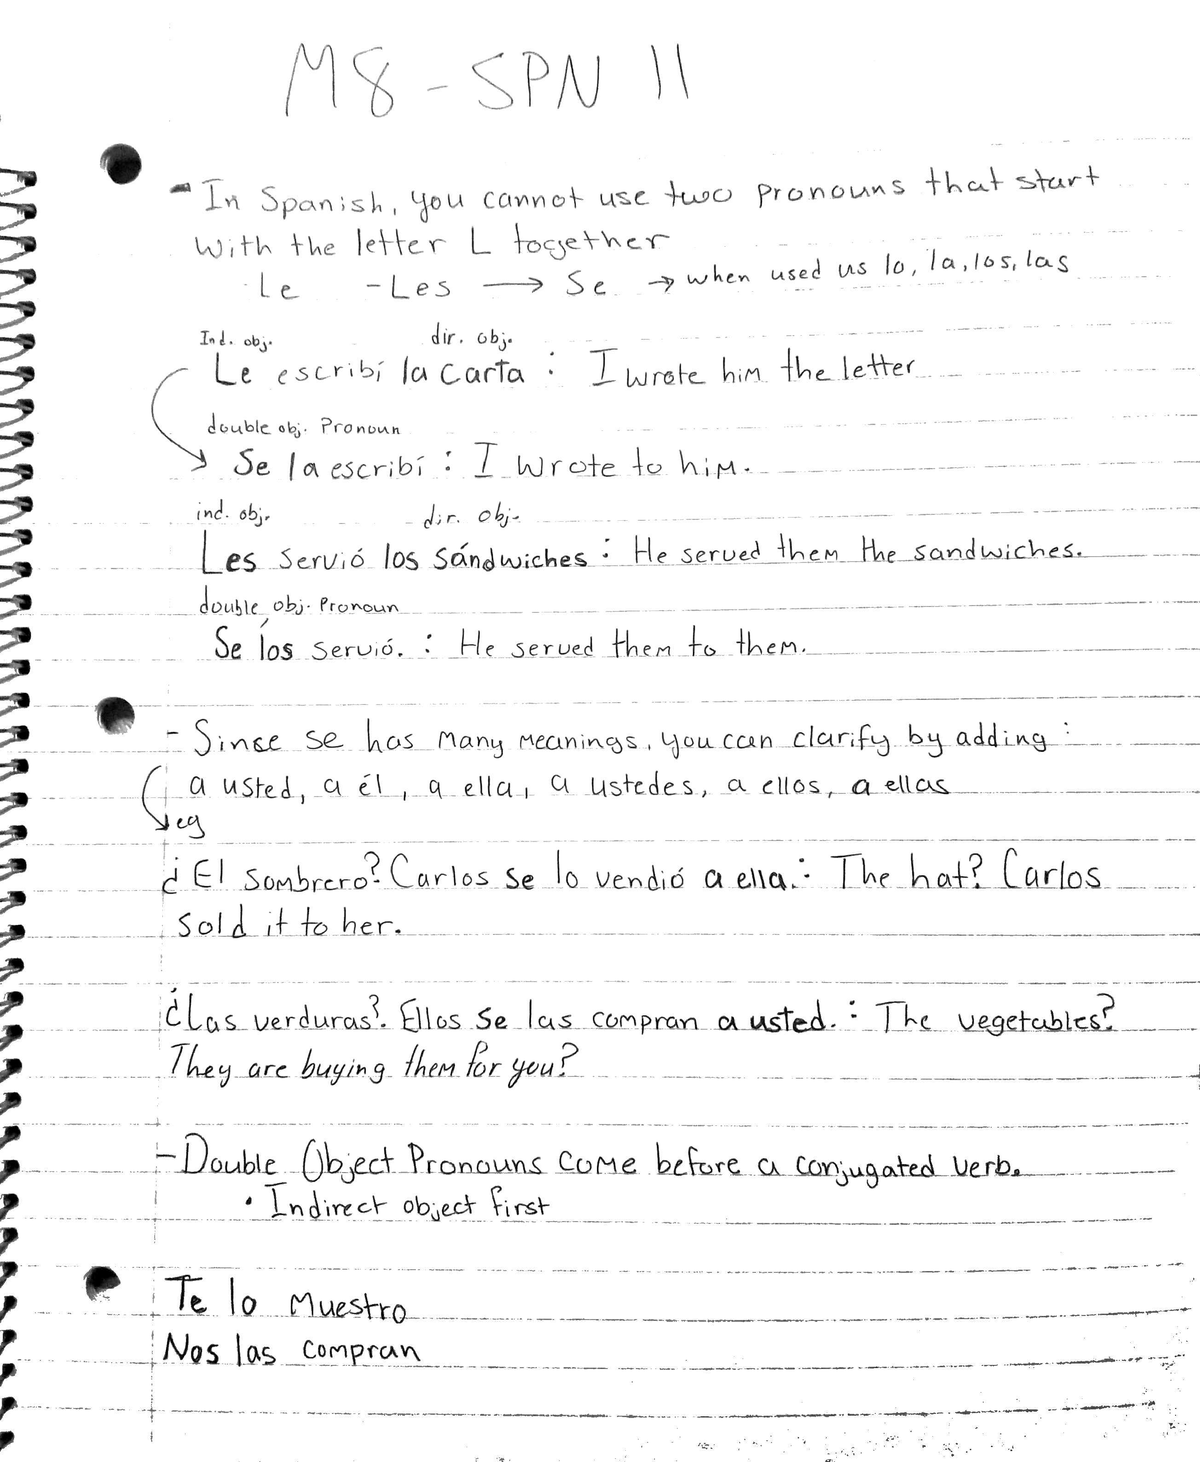 M8 - SPN 11
- In Spanish, you cannot use two pronouns that start
with the letter L together
Le - Les → Se → when used us lo, la, los, las
Ind. obj. dir. obj.
Le escribí la carta : I wrote him the letter
double obj. Pronoun
Se la escribí : I wrote to him.
ind. obj. dir. obj.
Les servió los sándwiches : He served them the sandwiches.
double obj. Pronoun
Se los servió. : He served them to them.
- Since se has many meanings, you can clarify by adding :
a usted, a él, a ella, a ustedes, a ellos, a ellas
eg
¿El sombrero? Carlos se lo vendió a ella. : The hat? Carlos
sold it to her.
¿Las verduras?. Ellos se las compran a usted. : The vegetables?
They are buying them for you?
- Double Object Pronouns come before a conjugated verb.
• Indirect object first
Te lo muestro
Nos las compran